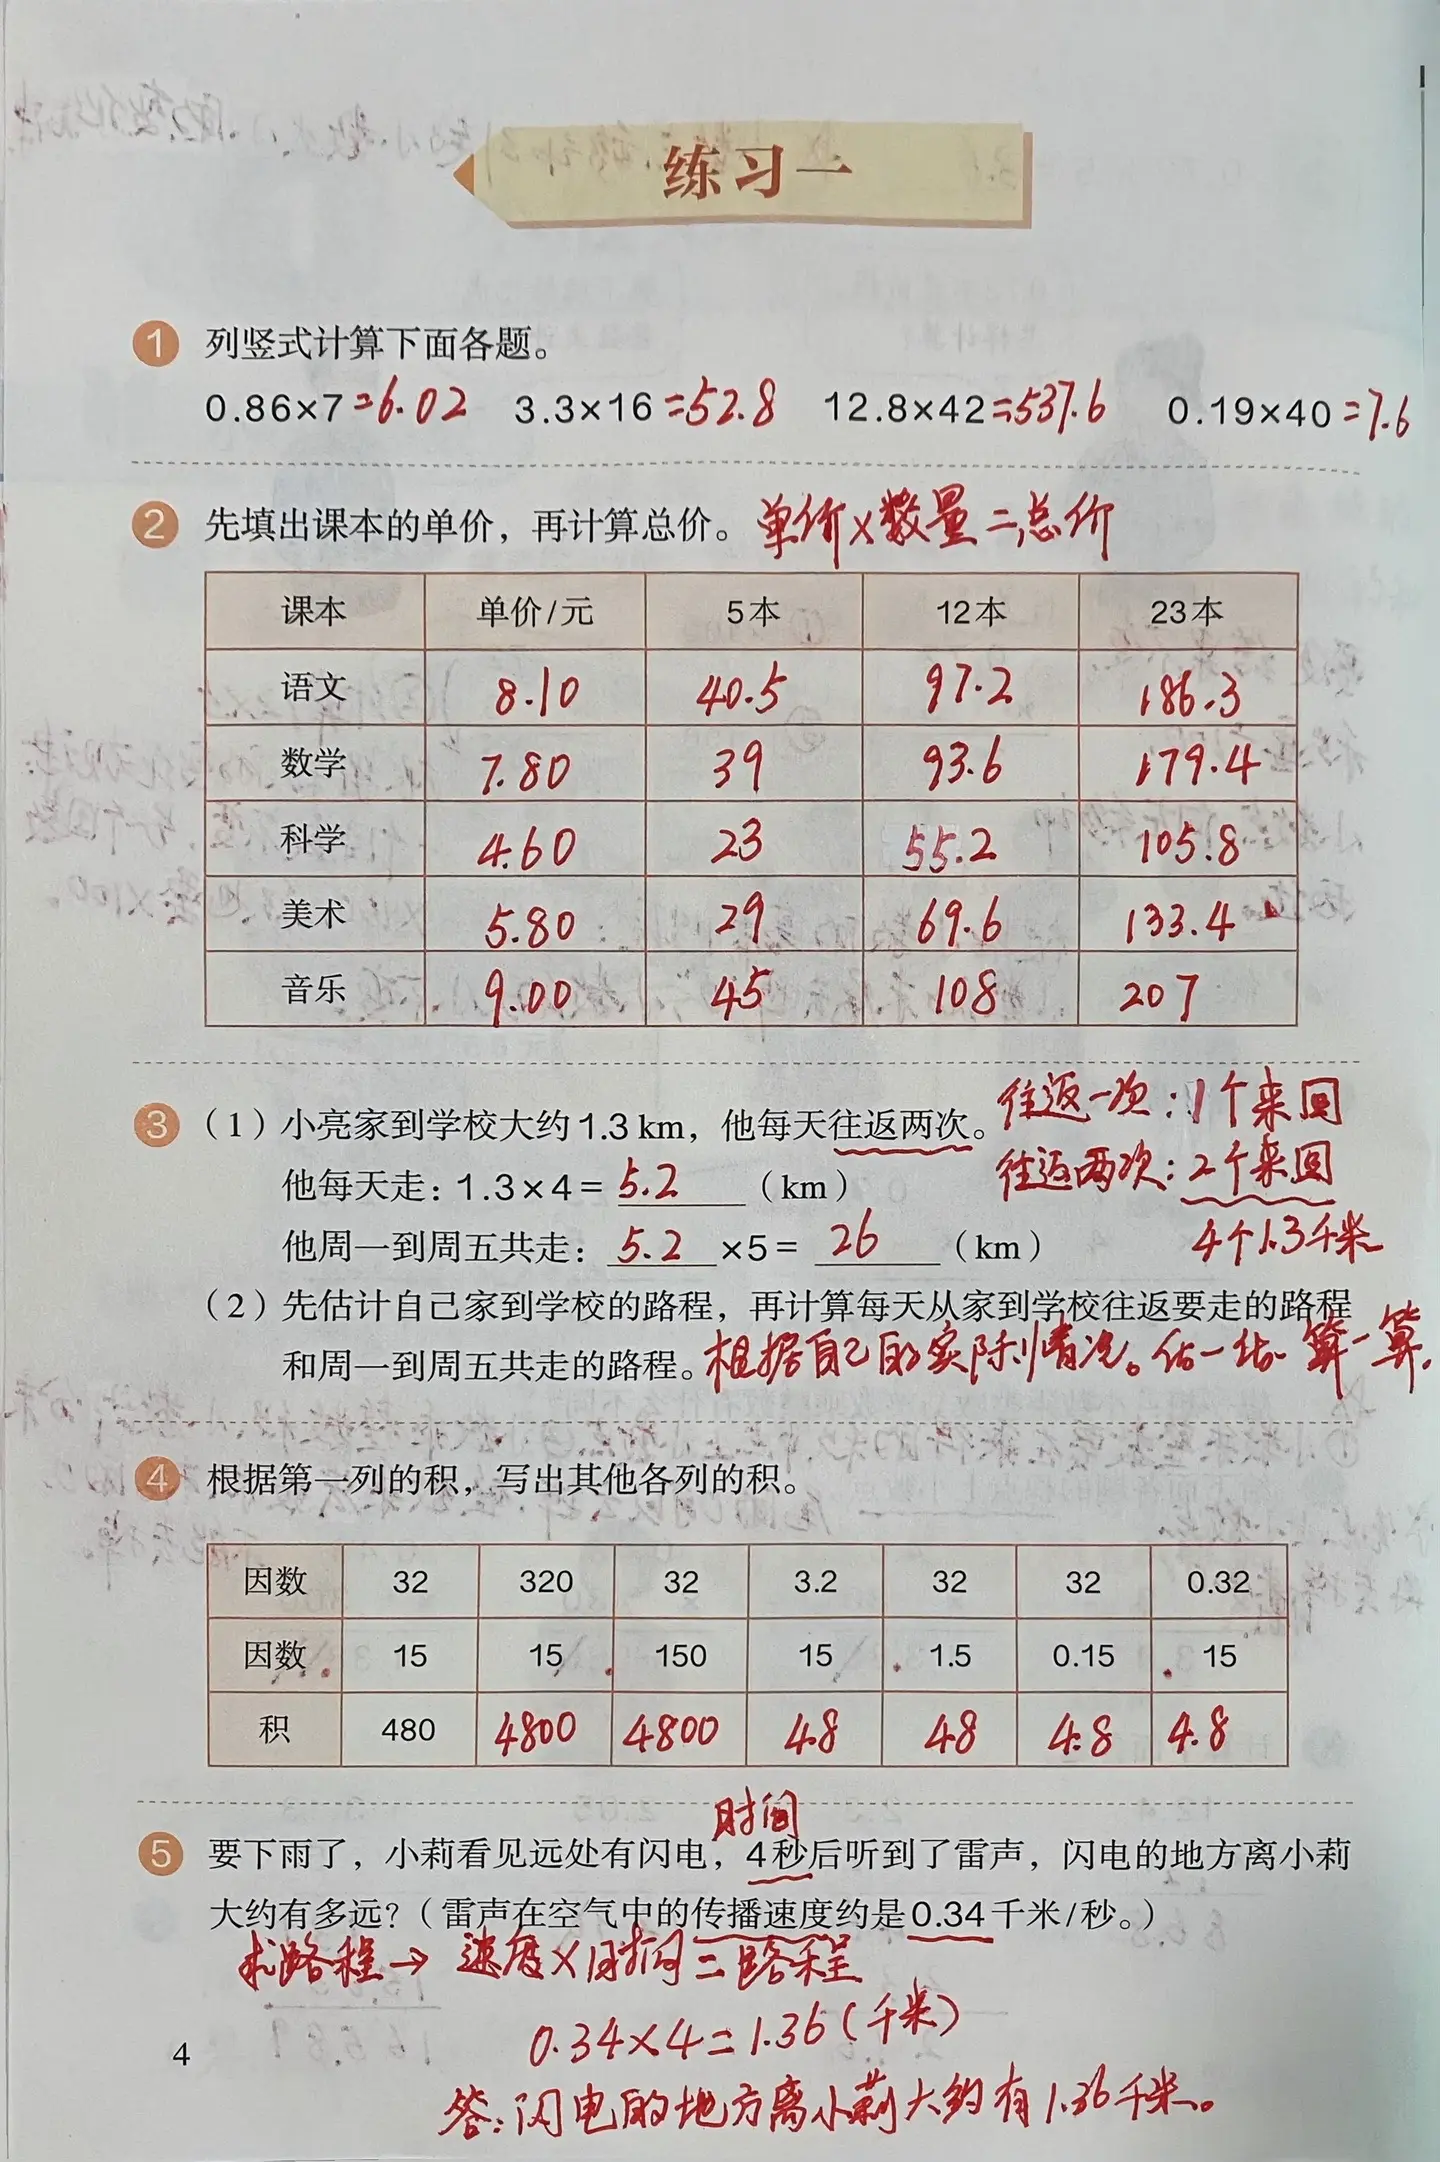 练习一
1 列竖式计算下面各题。
0.86×7=6.02 3.3×16=52.8 12.8×42=537.6 0.19×40=7.6
2 先填出课本的单价，再计算总价。 单价×数量=总价
课本 单价/元 5本 12本 23本
语文 8.10 40.5 97.2 186.3
数学 7.80 39 93.6 179.4
科学 4.60 23 55.2 105.8
美术 5.80 29 69.6 133.4
音乐 9.00 45 108 207
往返一次：1个来回
3 （1）小亮家到学校大约1.3 km，他每天往返两次。
往返两次：2个来回
他每天走：1.3×4= 5.2 （km）
4个1.3千米
他周一到周五共走： 5.2 ×5= 26 （km）
（2）先估计自己家到学校的路程，再计算每天从家到学校往返要走的路程
和周一到周五共走的路程。根据自己的实际情况。估一估 算一算.
4 根据第一列的积，写出其他各列的积。
因数 32 320 32 3.2 32 32 0.32
因数 15 15 150 15 1.5 0.15 15
积 480 4800 4800 48 48 4.8 4.8
时间
5 要下雨了，小莉看见远处有闪电，4秒后听到了雷声，闪电的地方离小莉
大约有多远？（雷声在空气中的传播速度约是0.34千米/秒。）
求路程→ 速度×时间=路程
0.34×4=1.36(千米)
答：闪电的地方离小莉大约有1.36千米。
4